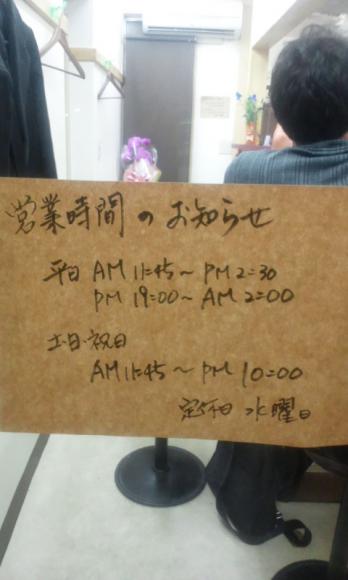 営業時間のお知らせ
平日 AM 11:45～PM 2:30
PM 19:00～AM 2:00
土・日・祝日
AM 11:45～PM 10:00
定休日 水曜日